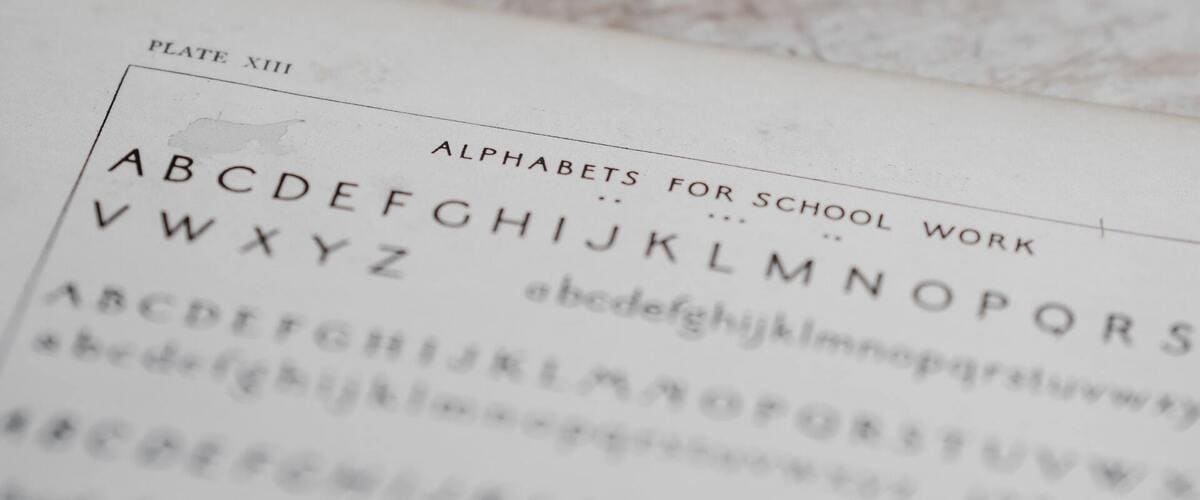 PLATE XIII
ALPHABETS FOR SCHOOL WORK
A B C D E F G H I J K L M N O P Q R S
V W X Y Z
abcdefghijklmnopqrstuvwxy
A B C D E F G H I J K L M N O P Q R S T U V W
abcdefghijklmnopqrstuvwxyz